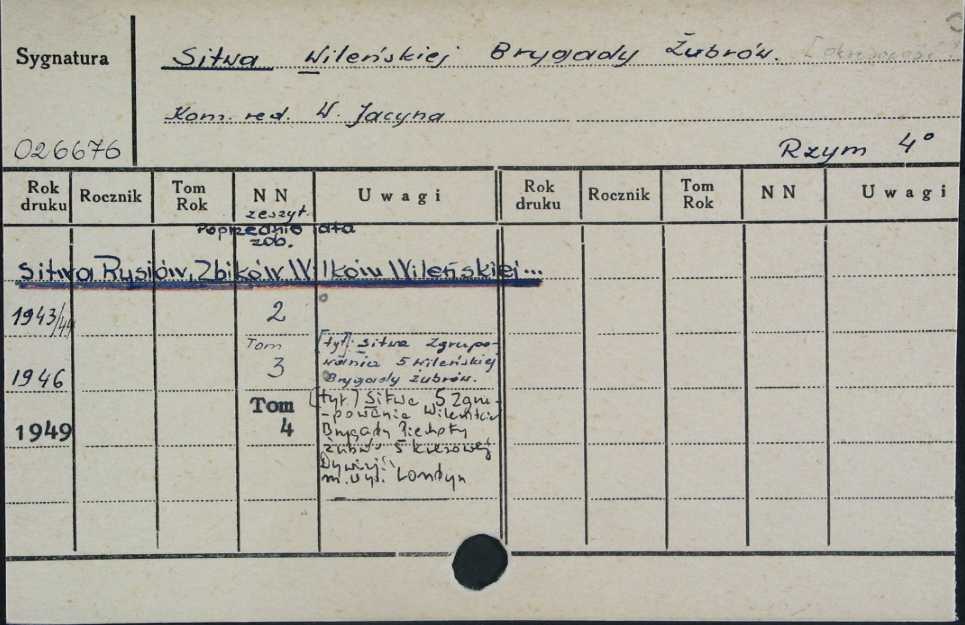 Sygnatura
Sitwa Wileńskiej Brygady Żubrów.
Kom. red. W. Jacyna
026676
Rzym 4°
Rok druku Rocznik Tom Rok NN Uwagi Rok druku Rocznik Tom Rok NN Uwagi
zeszyt.
Poprzednie lata
zob.
Sitwa Rysiów, Żbików, Wilków Wileńskiej...
1943/44 2
Tom
1946 3
[tyt]: Sitwa Zgrupo-
wania 5 Wileńskiej
Brygady Żubrów.
1949 Tom 4
[tyt.] Sitwa 5 Zgru-
-powania Wileńskiej
Brygady Piechoty
Żubrów 5 Kresowej
Dywizji
m. wyd. Londyn